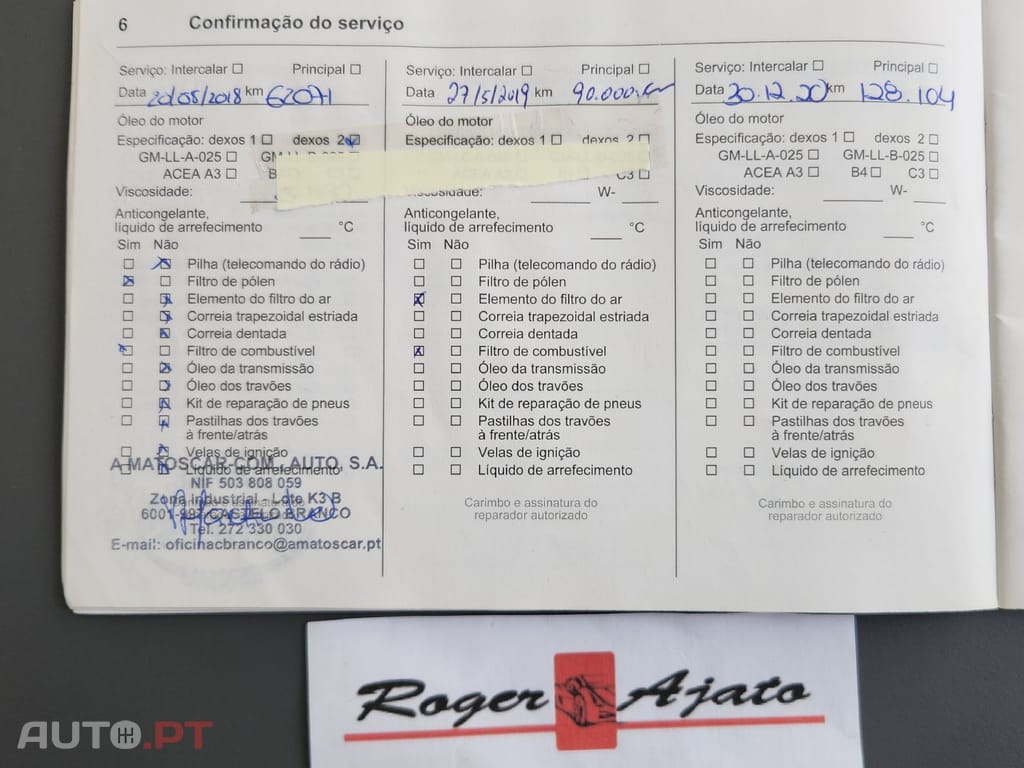 6 Confirmação do serviço
Serviço: Intercalar Principal
Data 20/08/2018 km 62071
Óleo do motor
Especificação: dexos 1 dexos 2
GM-LL-A-025
ACEA A3
Viscosidade:
Anticongelante,
líquido de arrefecimento °C
Sim Não
Pilha (telecomando do rádio)
Filtro de pólen
Elemento do filtro do ar
Correia trapezoidal estriada
Correia dentada
Filtro de combustível
Óleo da transmissão
Óleo dos travões
Kit de reparação de pneus
Pastilhas dos travões
à frente/atrás
Velas de ignição
Líquido de arrefecimento
A MATOSCAR-COM. AUTO, S.A.
NIF 503 808 059
Zona Industrial - Lote K3 B
6001-997 CASTELO BRANCO
Tel. 272 330 030
E-mail: oficinacbranco@amatoscar.pt
Serviço: Intercalar Principal
Data 27/5/2019 km 90.000 km
Óleo do motor
Especificação: dexos 1 dexos 2
C3
Viscosidade: W-
Anticongelante,
líquido de arrefecimento °C
Sim Não
Pilha (telecomando do rádio)
Filtro de pólen
Elemento do filtro do ar
Correia trapezoidal estriada
Correia dentada
Filtro de combustível
Óleo da transmissão
Óleo dos travões
Kit de reparação de pneus
Pastilhas dos travões
à frente/atrás
Velas de ignição
Líquido de arrefecimento
Carimbo e assinatura do
reparador autorizado
Serviço: Intercalar Principal
Data 30.12.20 km 128.104
Óleo do motor
Especificação: dexos 1 dexos 2
GM-LL-A-025 GM-LL-B-025
ACEA A3 B4 C3
Viscosidade: W-
Anticongelante,
líquido de arrefecimento °C
Sim Não
Pilha (telecomando do rádio)
Filtro de pólen
Elemento do filtro do ar
Correia trapezoidal estriada
Correia dentada
Filtro de combustível
Óleo da transmissão
Óleo dos travões
Kit de reparação de pneus
Pastilhas dos travões
à frente/atrás
Velas de ignição
Líquido de arrefecimento
Carimbo e assinatura do
reparador autorizado
Roger Ajato
AUTO.PT